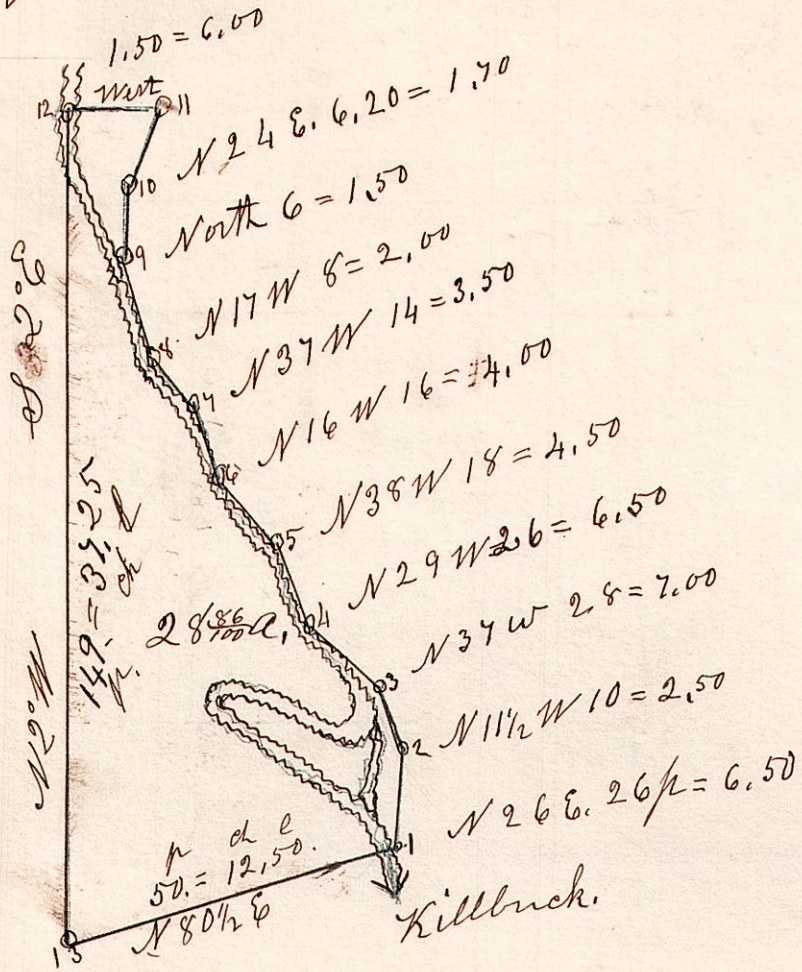 1.50 = 6.00
12 West 11
N 24 E. 6,20 = 1,70
10
North 6 = 1,50
9
N 17 W 8 = 2,00
8
N 37 W 14 = 3,50
7
N 16 W 16 = 4,00
6
N 38 W 18 = 4,50
5
N 29 W 26 = 6,50
4
N 37 W 28 = 7.00
3
N 11½ W 10 = 2,50
2
N 26 E. 26 p = 6,50
1
S 2° E
N 2° W
149 = 37,25
p. ch l
28 86/100 a.
p ch l
50. = 12,50.
N 80½ E
13
Killbuck.